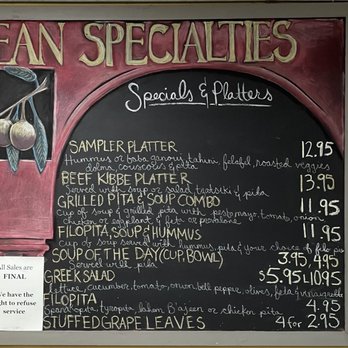 EAN SPECIALTIES
Specials & Platters
SAMPLER PLATTER 12.95
Hummus or baba ganous, tahini, felafel, roasted veggies
dolma, couscous & pita
BEEF KIBBE PLATTER 13.95
Served with soup or salad, tzatsiki & pita
GRILLED PITA & SOUP COMBO 11.95
Cup of soup & grilled pita with pesto mayo, tomato, onion
chicken or eggplant & feta or provolone
FILOPITA, SOUP & HUMMUS 11.95
Cup of soup served with hummus, pita & your choice of filo
SOUP OF THE DAY (CUP, BOWL) 3.95, 4.95
Served with pita
GREEK SALAD $5.95 & 10.95
Lettuce, cucumber, tomato, onion, bell pepper, olives, feta & vinaigrette
FILOPITA 4.95
Spanakopita, tyropita, lahem B'ajeen or chicken pita
STUFFED GRAPE LEAVES 4 for 2.95
ll Sales are
FINAL
We have the
ght to refuse
service